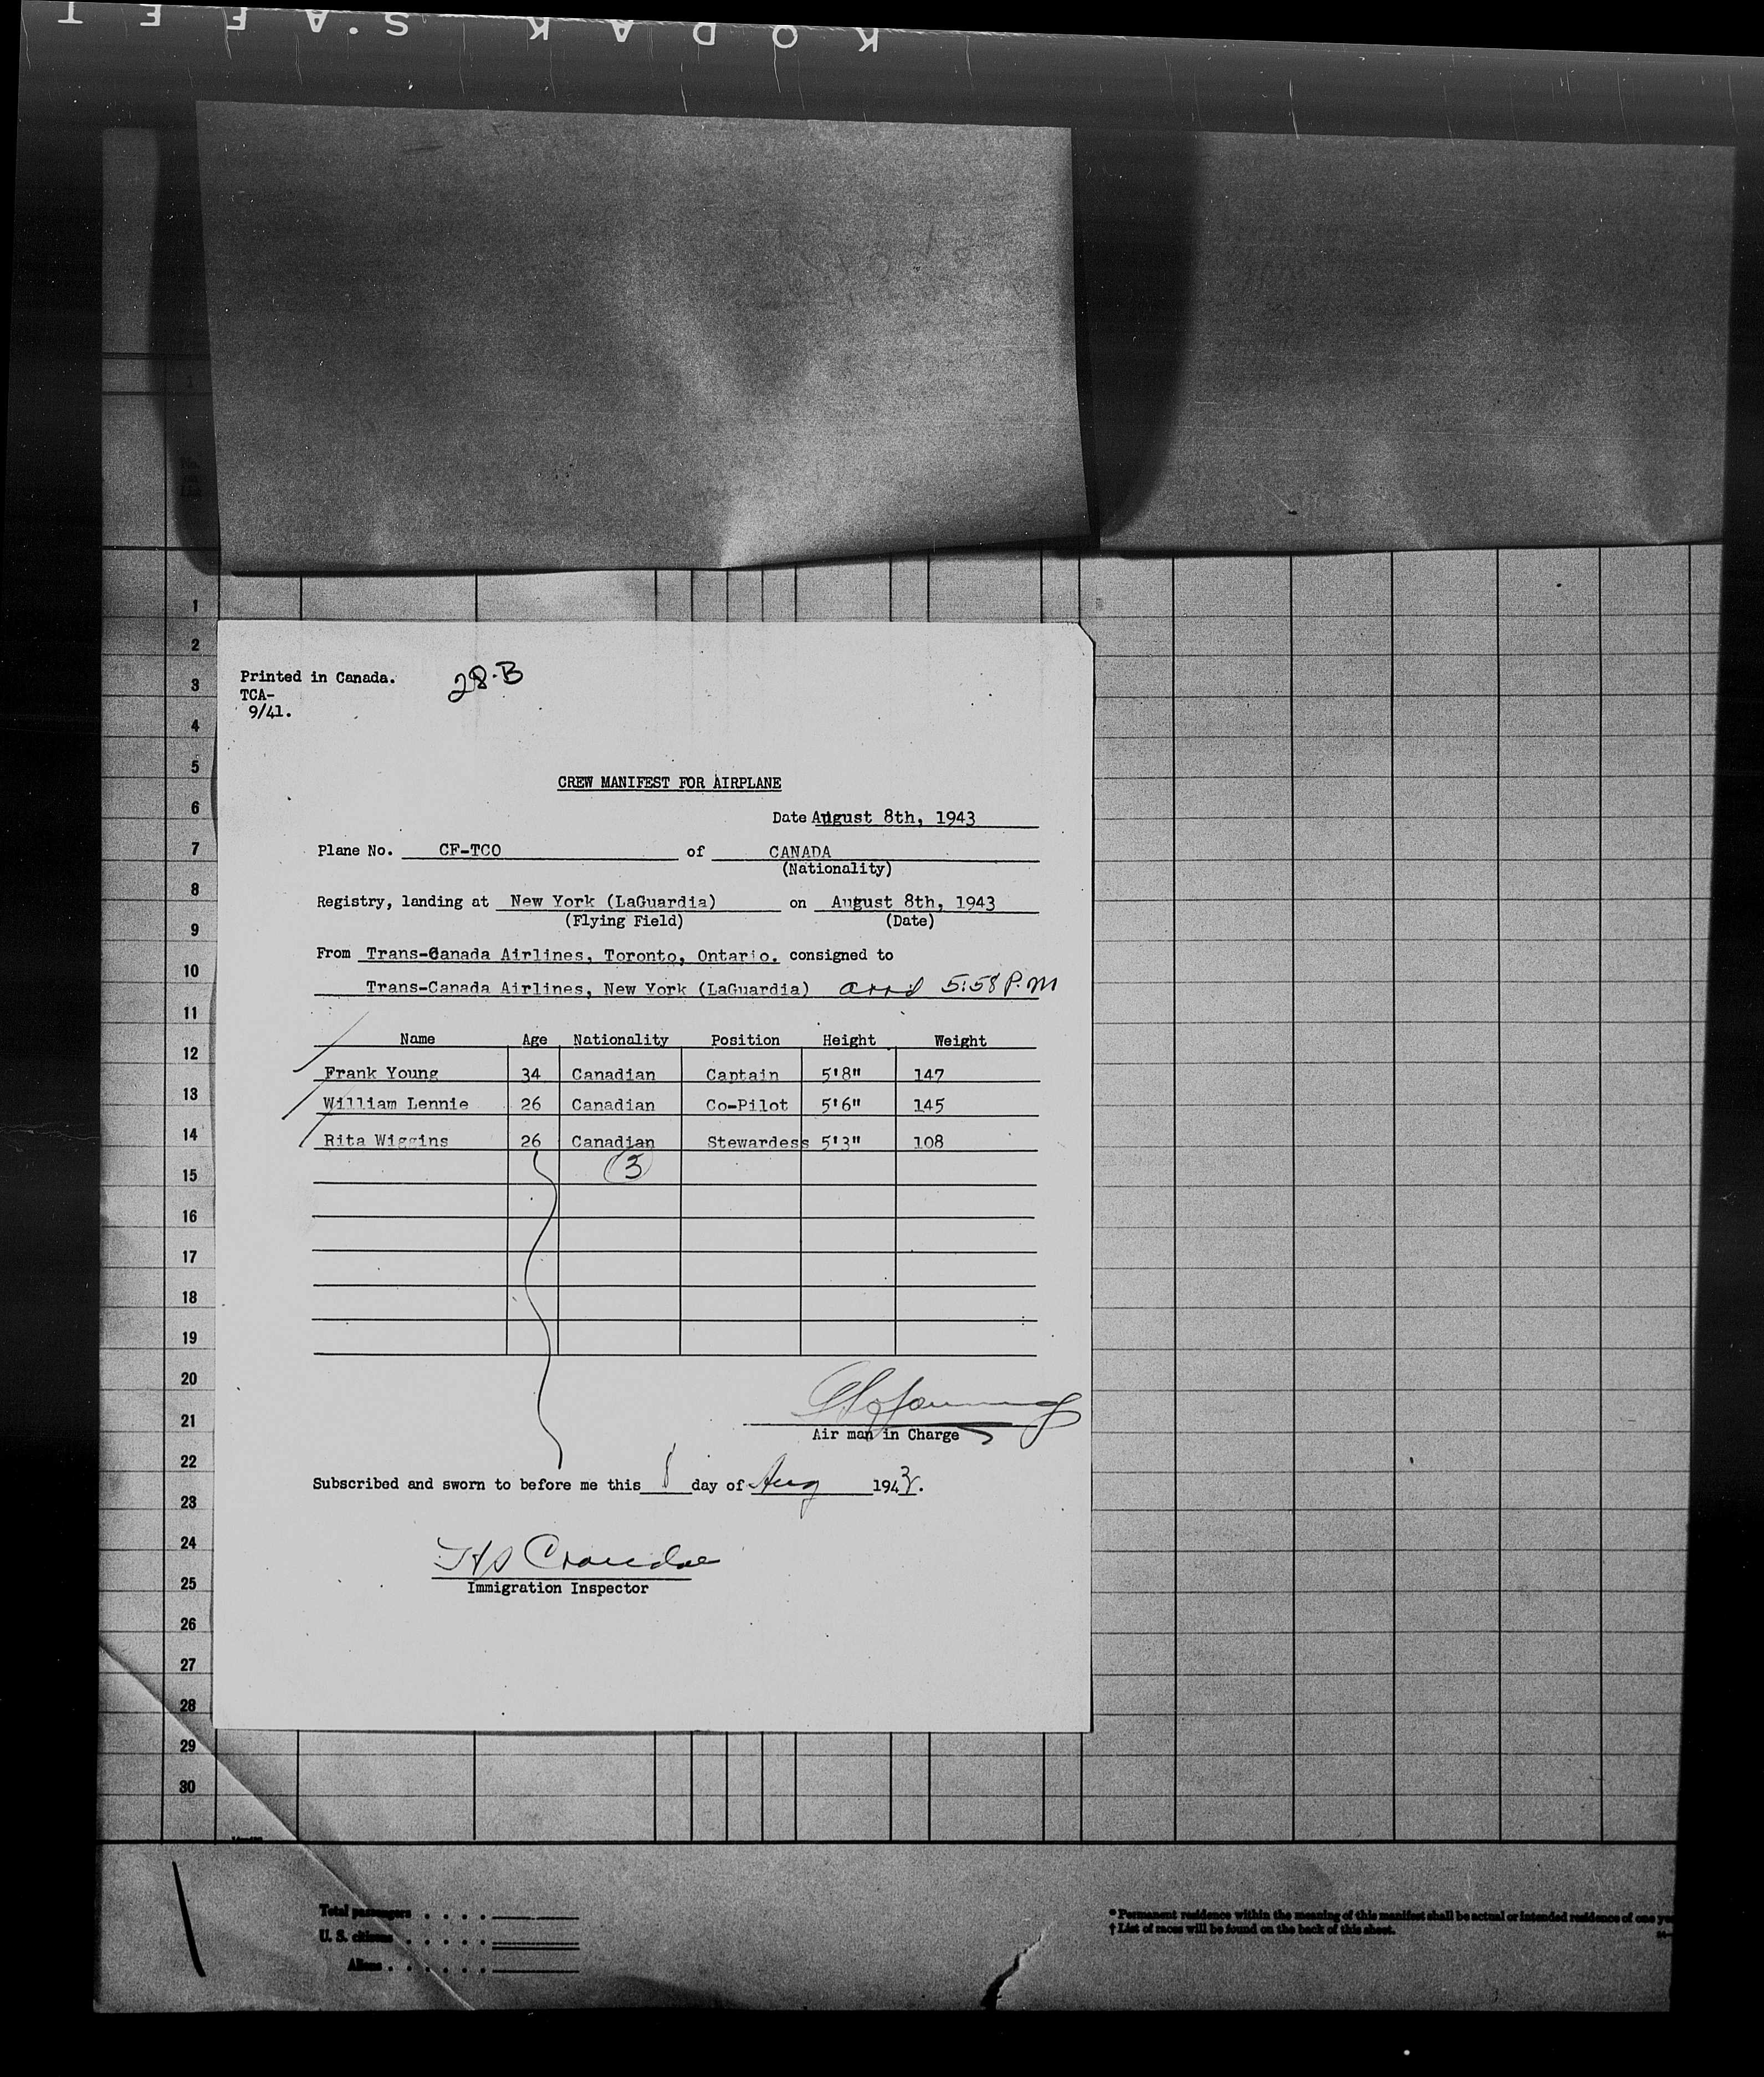 KODAK S.AFET
Printed in Canada.
28-B
TCA-
9/41.
CREW MANIFEST FOR AIRPLANE
Date August 8th, 1943
Plane No. CF-TCO of CANADA
(Nationality)
Registry, landing at New York (LaGuardia) on August 8th, 1943
(Flying Field) (Date)
From Trans-Canada Airlines, Toronto, Ontario. consigned to
Trans-Canada Airlines, New York (LaGuardia) arrd 5:58 P.M
Name Age Nationality Position Height Weight
Frank Young 34 Canadian Captain 5'8" 147
William Lennie 26 Canadian Co-Pilot 5'6" 145
Rita Wiggins 26 Canadian Stewardess 5'3" 108
3
Air man in Charge
Subscribed and sworn to before me this 8 day of Aug 1943.
Immigration Inspector
1
2
3
4
5
6
7
8
9
10
11
12
13
14
15
16
17
18
19
20
21
22
23
24
25
26
27
28
29
30
Total passengers
U. S. citizens
Aliens
* Permanent residence within the meaning of this manifest shall be actual or intended residence of one
† List of races will be found on the back of this sheet.